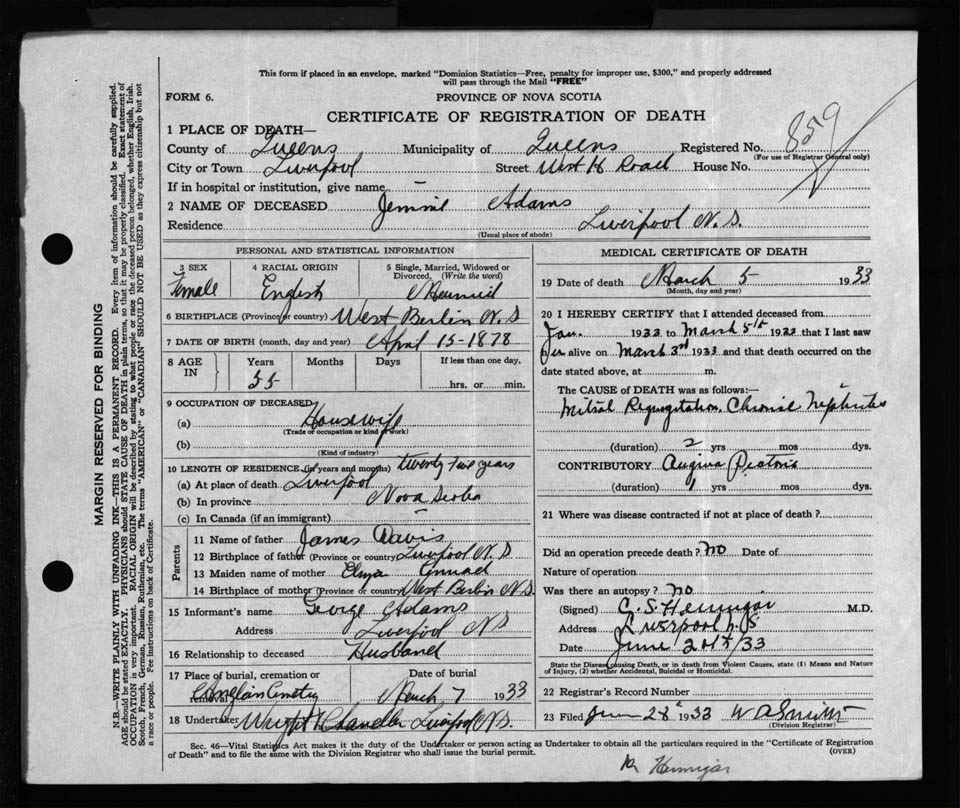 This form if placed in an envelope, marked "Dominion Statistics—Free, penalty for improper use, $300," and properly addressed
will pass through the Mail "FREE"
FORM 6.
PROVINCE OF NOVA SCOTIA
CERTIFICATE OF REGISTRATION OF DEATH
859
1 PLACE OF DEATH—
County of Queens Municipality of Queens Registered No.
(For use of Registrar General only)
City or Town Liverpool Street West H Road House No.
If in hospital or institution, give name –
2 NAME OF DECEASED Jemmie Adams
Residence Liverpool N.S.
(Usual place of abode)
PERSONAL AND STATISTICAL INFORMATION
3 SEX 4 RACIAL ORIGIN 5 Single, Married, Widowed or
Divorced. (Write the word)
Female English Married
6 BIRTHPLACE (Province or country) West Berlin N.S
7 DATE OF BIRTH (month, day and year) April 15-1878
8 AGE IN Years Months Days If less than one day,
55 hrs. or min.
9 OCCUPATION OF DECEASED
(a) Housewife
(Trade or occupation or kind of work)
(b)
(Kind of industry)
10 LENGTH OF RESIDENCE (in years and months) twenty five years
(a) At place of death Liverpool
(b) In province Nova Scotia
(c) In Canada (if an immigrant) –
Parents
11 Name of father James Davis
12 Birthplace of father (Province or country) Liverpool N.S
13 Maiden name of mother Eliza
14 Birthplace of mother (Province or country) West Berlin N.S.
15 Informant's name George Adams
Address Liverpool NS
16 Relationship to deceased Husband
17 Place of burial, cremation or removal Date of burial
March 7 1933
18 Undertaker Wright & Chandler Liverpool N.S.
MEDICAL CERTIFICATE OF DEATH
19 Date of death March 5 1933
(Month, day and year)
20 I HEREBY CERTIFY that I attended deceased from
Jan. 1933 to March 5th 1933 that I last saw
her alive on March 3rd 1933 and that death occurred on the
date stated above, at m.
The CAUSE OF DEATH was as follows:—
Mitral Regurgitation. Chronic Nephritis
(duration) 2 yrs mos dys.
CONTRIBUTORY Angina Pectoris
(duration) 1 yrs mos dys.
21 Where was disease contracted if not at place of death?
Did an operation precede death? no Date of
Nature of operation
Was there an autopsy? no
(Signed) C. S. Hennigar M.D.
Address Liverpool N.S
Date June 20th/33
State the Disease causing Death, or in death from Violent Causes, state (1) Means and Nature
of Injury, (2) whether Accidental, Suicidal or Homicidal.
22 Registrar's Record Number
23 Filed June 28 1933 W D Smith
(Division Registrar)
Sec. 46—Vital Statistics Act makes it the duty of the Undertaker or person acting as Undertaker to obtain all the particulars required in the "Certificate of Registration
of Death" and to file the same with the Division Registrar who shall issue the burial permit. (OVER)
Dr Hennigar
MARGIN RESERVED FOR BINDING
N.B.—WRITE PLAINLY WITH UNFADING INK—THIS IS A PERMANENT RECORD. Every item of information should be carefully supplied.
AGE should be stated EXACTLY. PHYSICIANS should STATE CAUSE OF DEATH in plain terms, so that it may be properly classified. Exact statement of
OCCUPATION is very important. RACIAL ORIGIN will be described by stating to what people or race the deceased person belonged, whether English, Irish,
Scotch, French, German, Russian, Ruthenian, etc. The terms "AMERICAN" or "CANADIAN" SHOULD NOT BE USED as they express citizenship but not
a race or people. Fee instructions on back of Certificate.